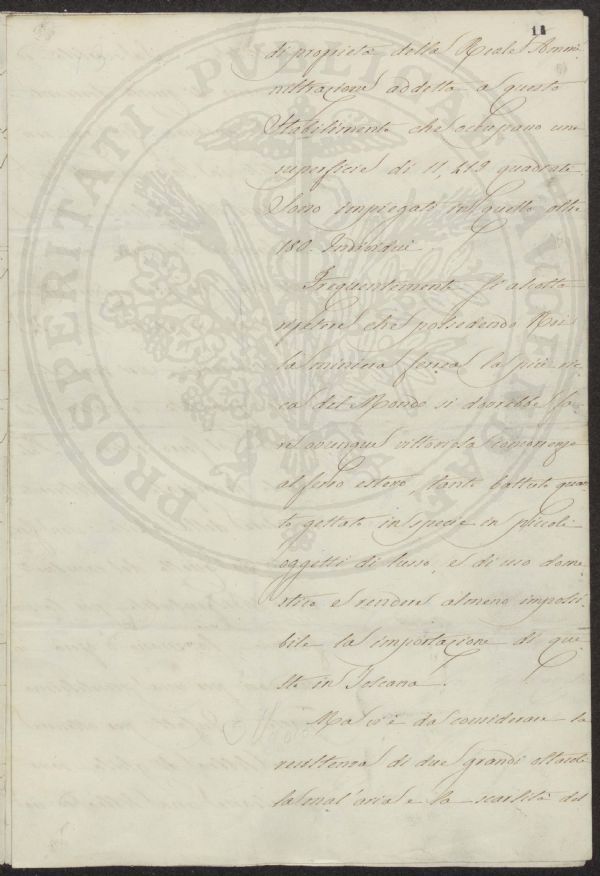 11
di proprietà della Reale Ammi-
nistrazione addetta a questo
Stabilimento che occupano una
superficie di 11,213 quadrate.
Sono impiegati in quello oltre
180. Individui
Frequentemente si ascolta
ripetere che possedendo Noi
la miniera senza la più ric-
ca del Mondo si dovrebbe fa-
re ovunque vittoriosa concorrenza
al ferro estero, tanto battuto quan-
to gettato in specie in piccoli
oggetti di lusso, e di uso dome-
stico e rendere almeno impossi-
bile la importazione di que-
ste in Toscana.
Ma ci è da considerare la
resistenza di due grandi ostacoli
la mal'aria e la scarsità del
PROSPERITATI PUBLICAE